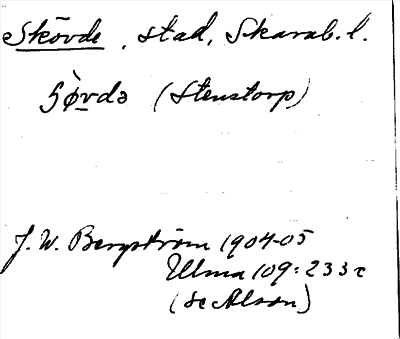 Skövde, stad, Skarab. l.
ʃø̀vdə (Stenstorp)
J. W. Bergström 1904-05
Ulma 109: 233 c
(se Alson)